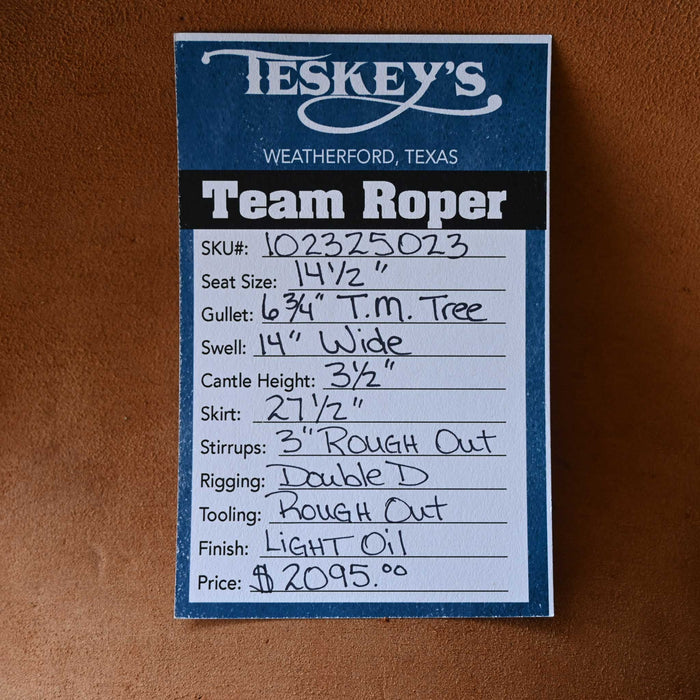 TESKEY'S
WEATHERFORD, TEXAS
Team Roper
SKU#: 102325023
Seat Size: 14 1/2"
Gullet: 6 3/4" T.M. Tree
Swell: 14" Wide
Cantle Height: 3 1/2"
Skirt: 27 1/2"
Stirrups: 3" ROUGH OUT
Rigging: Double D
Tooling: ROUGH OUT
Finish: LIGHT Oil
Price: $2095.00